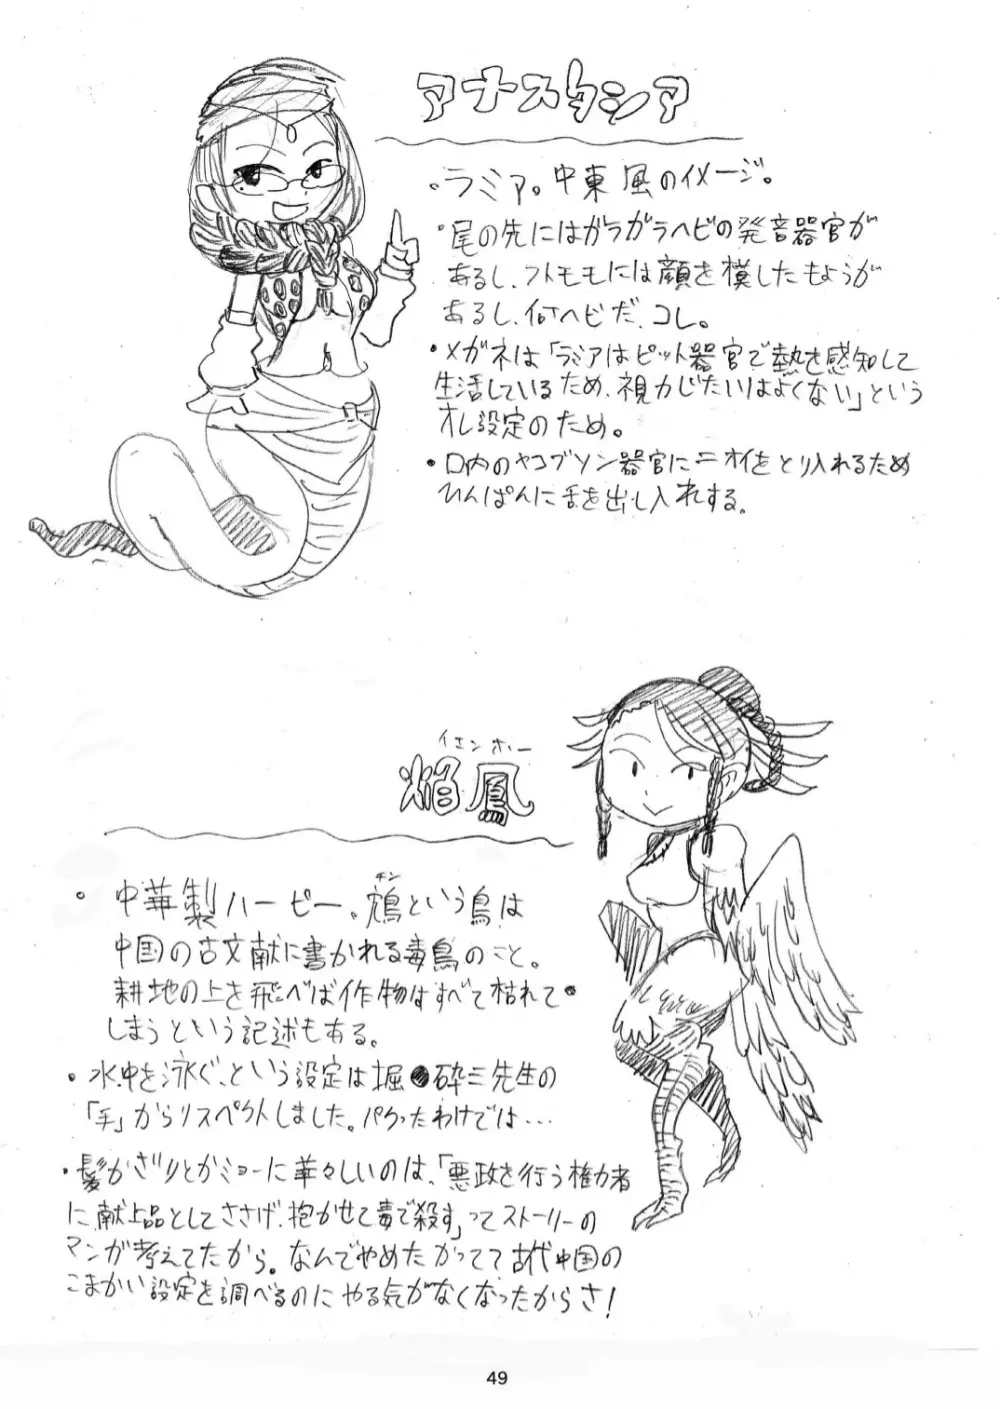 アナスタシア
・ラミア。中東風のイメージ。
・尾の先にはガラガラヘビの発音器官が
あるし、フトモモには顔を模したもようが
あるし、何ヘビだ、コレ。
・メガネは「ラミアはピット器官で熱を感知して
生活しているため、視力じたいはよくない」という
オレ設定のため。
・口内のヤコブソン器官にニオイをとり入れるため
ひんぱんに舌を出し入れする。
イェンホー
焔鳳
・中華製ハーピー。鴆という鳥は
チン
中国の古文献に書かれる毒鳥のこと。
耕地の上を飛べば作物はすべて枯れて
しまうという記述もある。
・水中を泳ぐ、という設定は掘●砕三先生の
「手」からリスペクトしました。パクったわけでは…
・髪かざりとかミョーに華々しいのは、「悪政を行う権力者
に献上品としてささげ、抱かせて毒で殺す」ってストーリーの
マンガ考えてたから。なんでやめたかってて古代中国の
こまかい設定を調べるのにやる気がなくなったからさ!
49